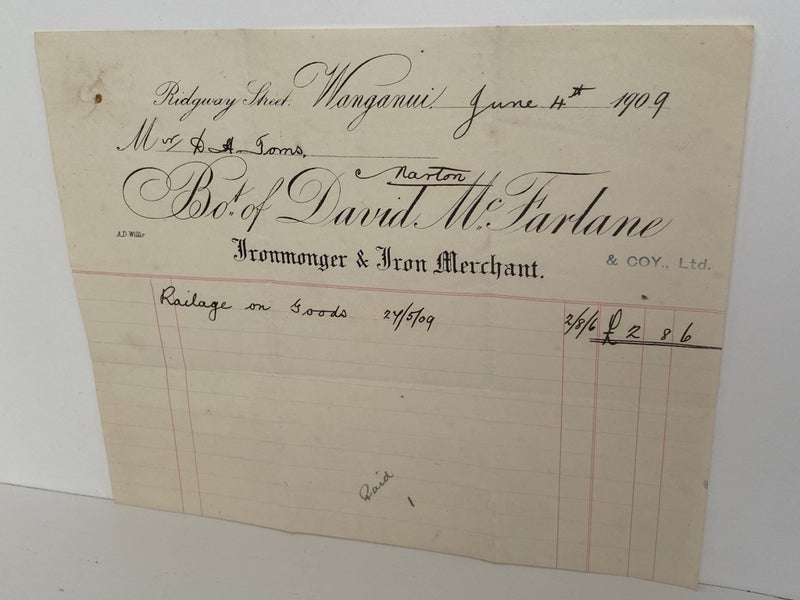 Ridgway Street. Wanganui, June 4th 1909
Mr D A Toms.
Marton
Bot. of David McFarlane
A.D. Willis
Ironmonger & Iron Merchant.
& COY., Ltd.
Railage on Goods 27/5/09 2/8/6 £2 8 6
Paid